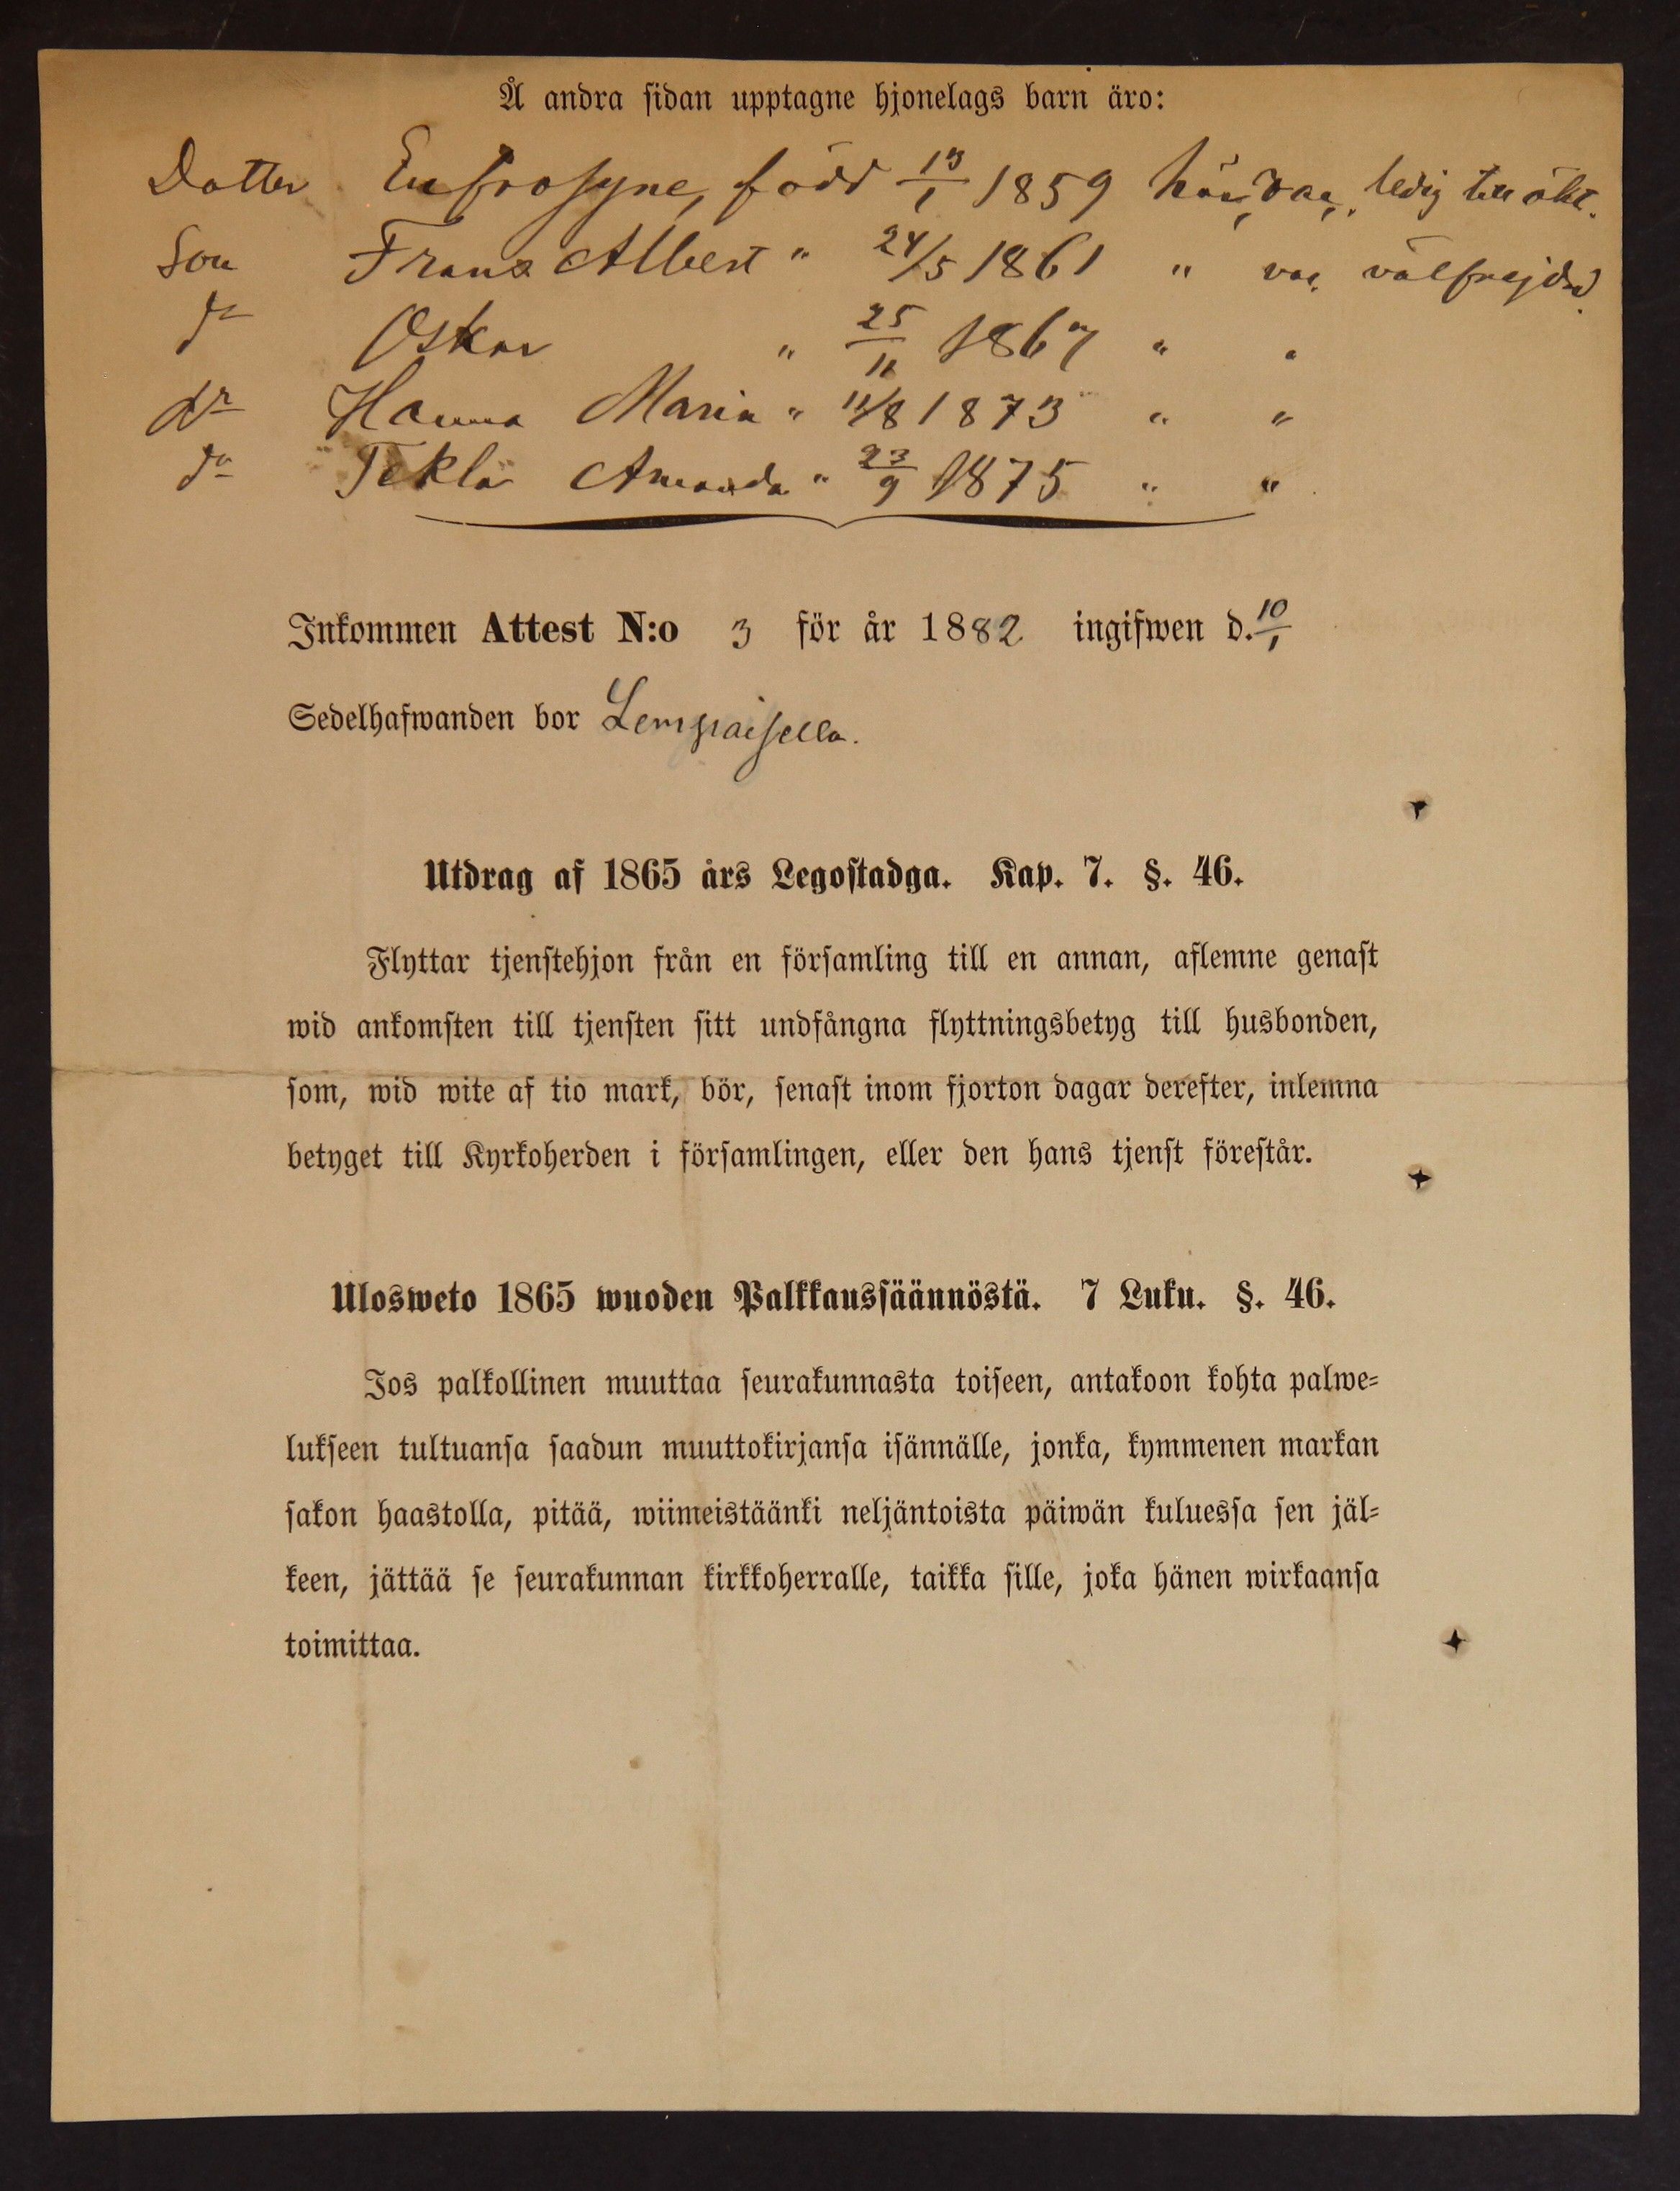 Å andra sidan upptagne hjonelags barn äro:
Dotter Eufrosyne, född 13/1 1859 här, vac., ledig till äkt.
Son Frans Albert " 24/5 1861 " vac. välfrejdad
Oskar " 25/11 1867 " "
Hanna Maria " 11/8 1873 " "
Tekla Amanda " 23/9 1875 " "
Inkommen Attest N:o 3 för år 1882 ingifwen d. 10/1
Sedelhafwanden bor Lempaisella.
Utdrag af 1865 års Legostadga. Kap. 7. §. 46.
Flyttar tjenstehjon från en församling till en annan, aflemne genast
wid ankomsten till tjensten sitt undfångna flyttningsbetyg till husbonden,
som, wid wite af tio mark, bör, senast inom fjorton dagar derefter, inlemna
betyget till Kyrkoherden i församlingen, eller den hans tjenst förestår.
Ulosweto 1865 wuoden Palkkaussäännöstä. 7 Luku. §. 46.
Jos palkollinen muuttaa seurakunnasta toiseen, antakoon kohta palwe=
lukseen tultuansa saadun muuttokirjansa isännälle, jonka, kymmenen markan
sakon haastolla, pitää, wiimeistäänki neljäntoista päiwän kuluessa sen jäl=
keen, jättää se seurakunnan kirkkoherralle, taikka sille, joka hänen wirkaansa
toimittaa.